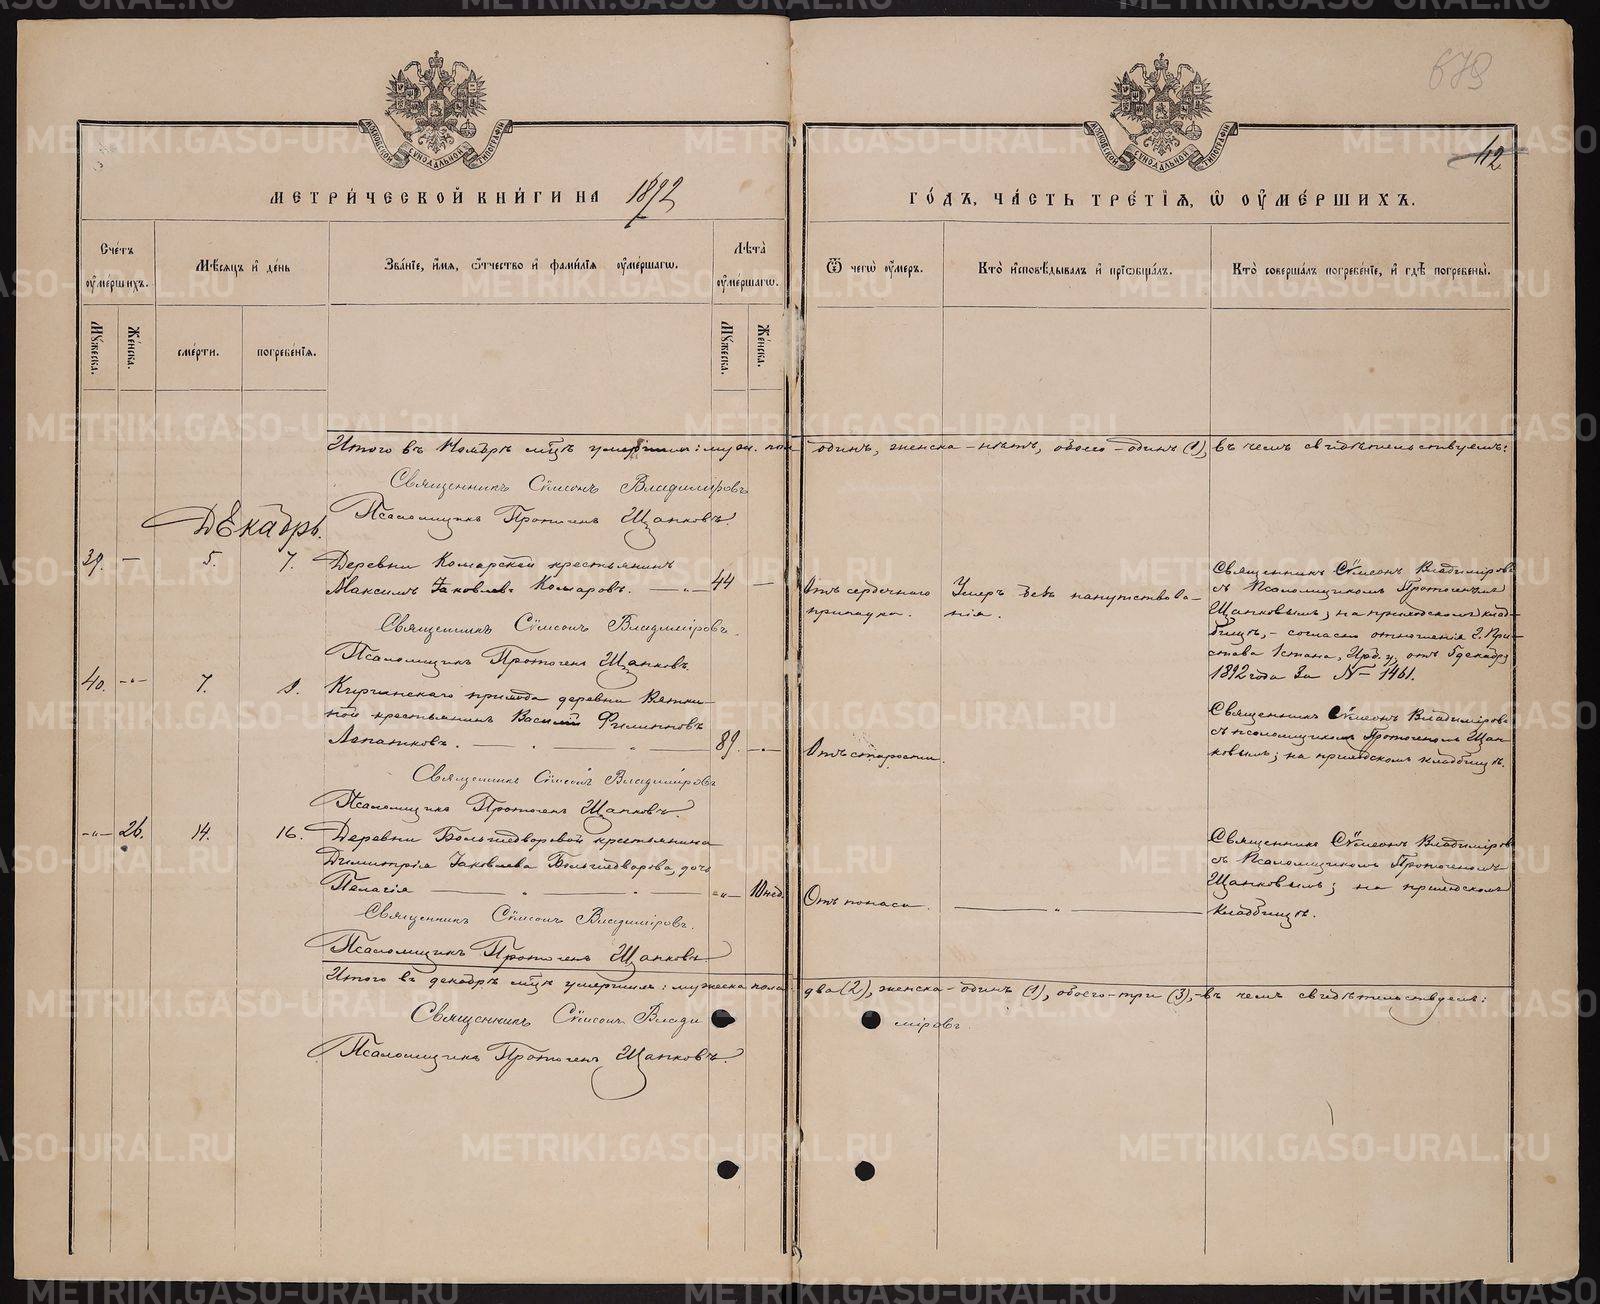 679
42
МЕТРИ́ЧЕСКОЙ КНИ́ГИ НА 1892
ГО́ДЪ, ЧА́СТЬ ТРЕ́ТІѦ, Ѽ ОУ҆МЕ́РШИХЪ.
Сче́тъ оу҆ме́ршихъ.
Мѣ́сѧцъ и҆ де́нь
Зва́нїе, и҆́мѧ, ѻ҆́тчество и҆ фами́лїѧ оу҆ме́ршагѡ.
Лѣ́та оу҆ме́ршагѡ.
Ѿ чегѡ̀ оу҆́меръ.
Кто̀ и҆сповѣ́дывалъ и҆ прїѡбща́лъ.
Кто̀ соверша́лъ погребе́нїе, и҆ гдѣ̀ погребены̀.
Мꙋ́жеска.
Же́нска.
сме́рти.
погребе́нїѧ.
Мꙋ́жеска.
Же́нска.
Итого въ Ноябрѣ мцѣ умерших: муж. пол. одинъ, женска - нѣтъ, обоего - одинъ (1), въ чемъ свидѣтельствуемъ:
Священникъ Сѵмеонъ Владиміровъ
Псаломщикъ Протогенъ Щапковъ.
Декабрь.
39. — 5. 7. Деревни Комарской крестьянинъ
Максимъ Іаковлевъ Комаровъ. — „ — 44 —
Отъ сердечного
припадка.
Умеръ безъ напутствова-
нія.
Священникъ Сѵмеонъ Владиміровъ
съ Псаломщикомъ Протогеномъ
Щапковымъ; на приходскомъ клад-
бищѣ, - согласно отношенія г. При-
става 1 стана, Ирб. у, отъ 5 декабря
1892 года за № 1461.
Священникъ Сѵмеонъ Владиміровъ.
Псаломщикъ Протогенъ Щапковъ.
40. - „ - 7. 9. Киргинскаго прихода деревни Вятки-
ной крестьянинъ Василій Филипповъ
Лопатковъ. — 89. - „ -
Отъ старости.
Священникъ Сѵмеонъ Владиміровъ
съ псаломщикомъ Протогеномъ Щап-
ковымъ; на приходскомъ кладбищѣ.
Священникъ Сѵмеонъ Владиміровъ
Псаломщикъ Протогенъ Щапковъ.
- „ - 26. 14. 16. Деревни Большедворовой крестьянина
Димитрія Іаковлева Большедворова, дочь
Пелагія — „ — „ — - „ - 10 нед.
Отъ поноса. — „ —
Священникъ Сѵмеонъ Владиміровъ
съ Псаломщикомъ Протогеномъ
Щапковымъ; на приходскомъ
кладбищѣ.
Священникъ Сѵмеонъ Владиміровъ.
Псаломщикъ Протогенъ Щапковъ
Итого въ декабрѣ мцѣ умершихъ: мужеска пола два (2), женска - одинъ (1), обоего - три (3), - въ чемъ свидѣтельствуемъ:
Священникъ Сѵмеонъ Влади міровъ.
Псаломщикъ Протогенъ Щапковъ.
METRIKI.GASO-URAL.RU